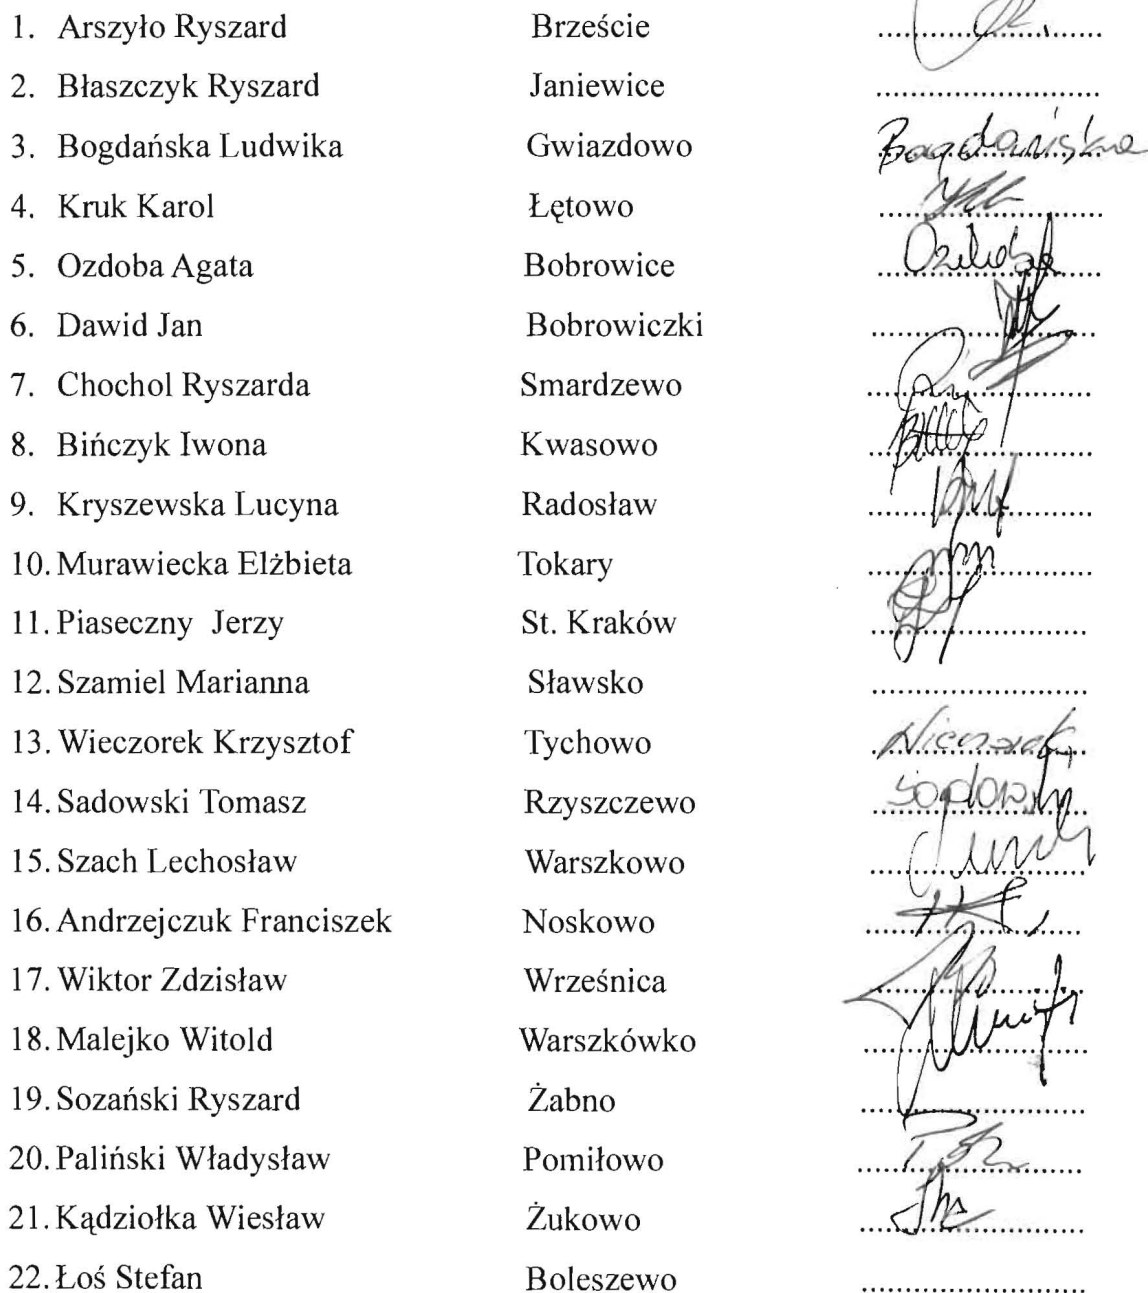 1. Arszyło Ryszard Brzeście
2. Błaszczyk Ryszard Janiewice
3. Bogdańska Ludwika Gwiazdowo Bogdańska
4. Kruk Karol Łętowo
5. Ozdoba Agata Bobrowice
6. Dawid Jan Bobrowiczki
7. Chochol Ryszarda Smardzewo
8. Bińczyk Iwona Kwasowo
9. Kryszewska Lucyna Radosław
10. Murawiecka Elżbieta Tokary
11. Piaseczny Jerzy St. Kraków
12. Szamiel Marianna Sławsko
13. Wieczorek Krzysztof Tychowo Wieczorek
14. Sadowski Tomasz Rzyszczewo
15. Szach Lechosław Warszkowo
16. Andrzejczuk Franciszek Noskowo
17. Wiktor Zdzisław Wrześnica
18. Malejko Witold Warszkówko
19. Sozański Ryszard Żabno
20. Paliński Władysław Pomiłowo
21. Kądziołka Wiesław Żukowo
22. Łoś Stefan Boleszewo